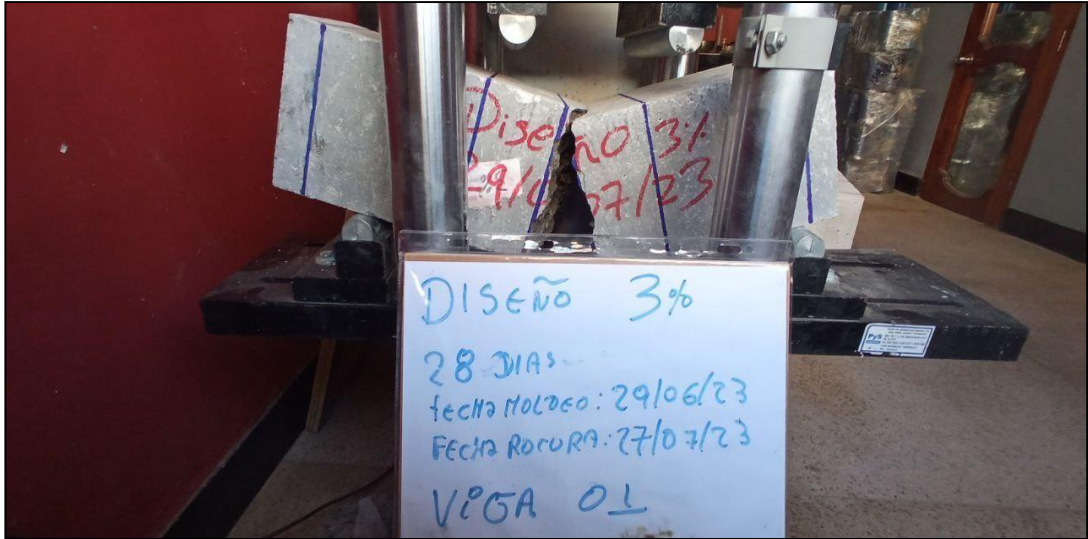 Diseño 3%
29/07/23
DISEÑO 3%
28 DIAS
FECHA MOLDEO: 29/06/23
FECHA ROTURA: 27/07/23
VIGA 01
PyS